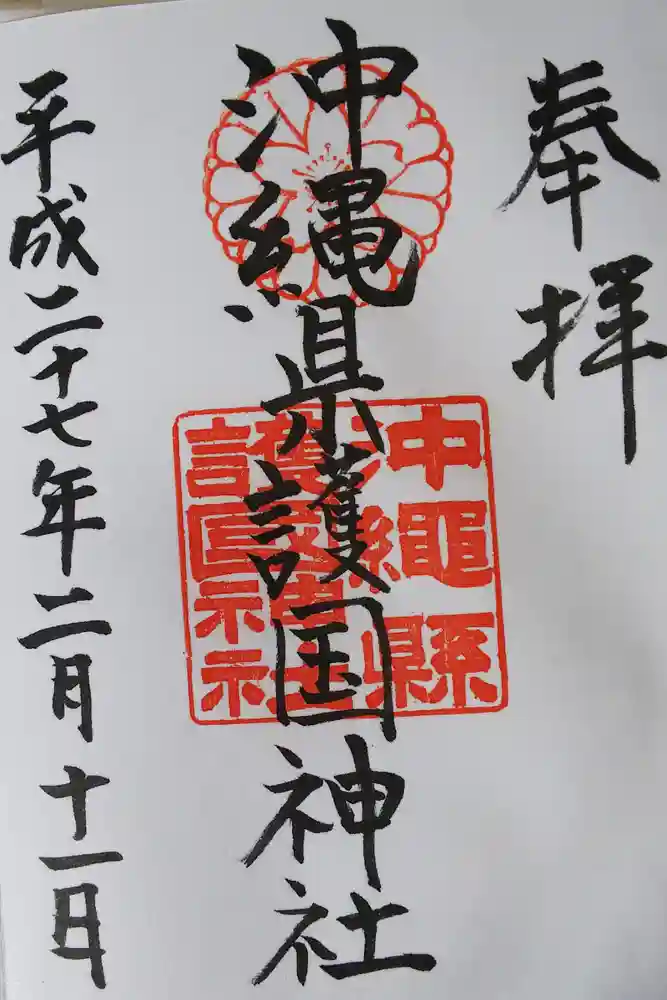 奉拝
沖縄県護国神社
沖繩縣
護國神社
平成二十七年二月十一日